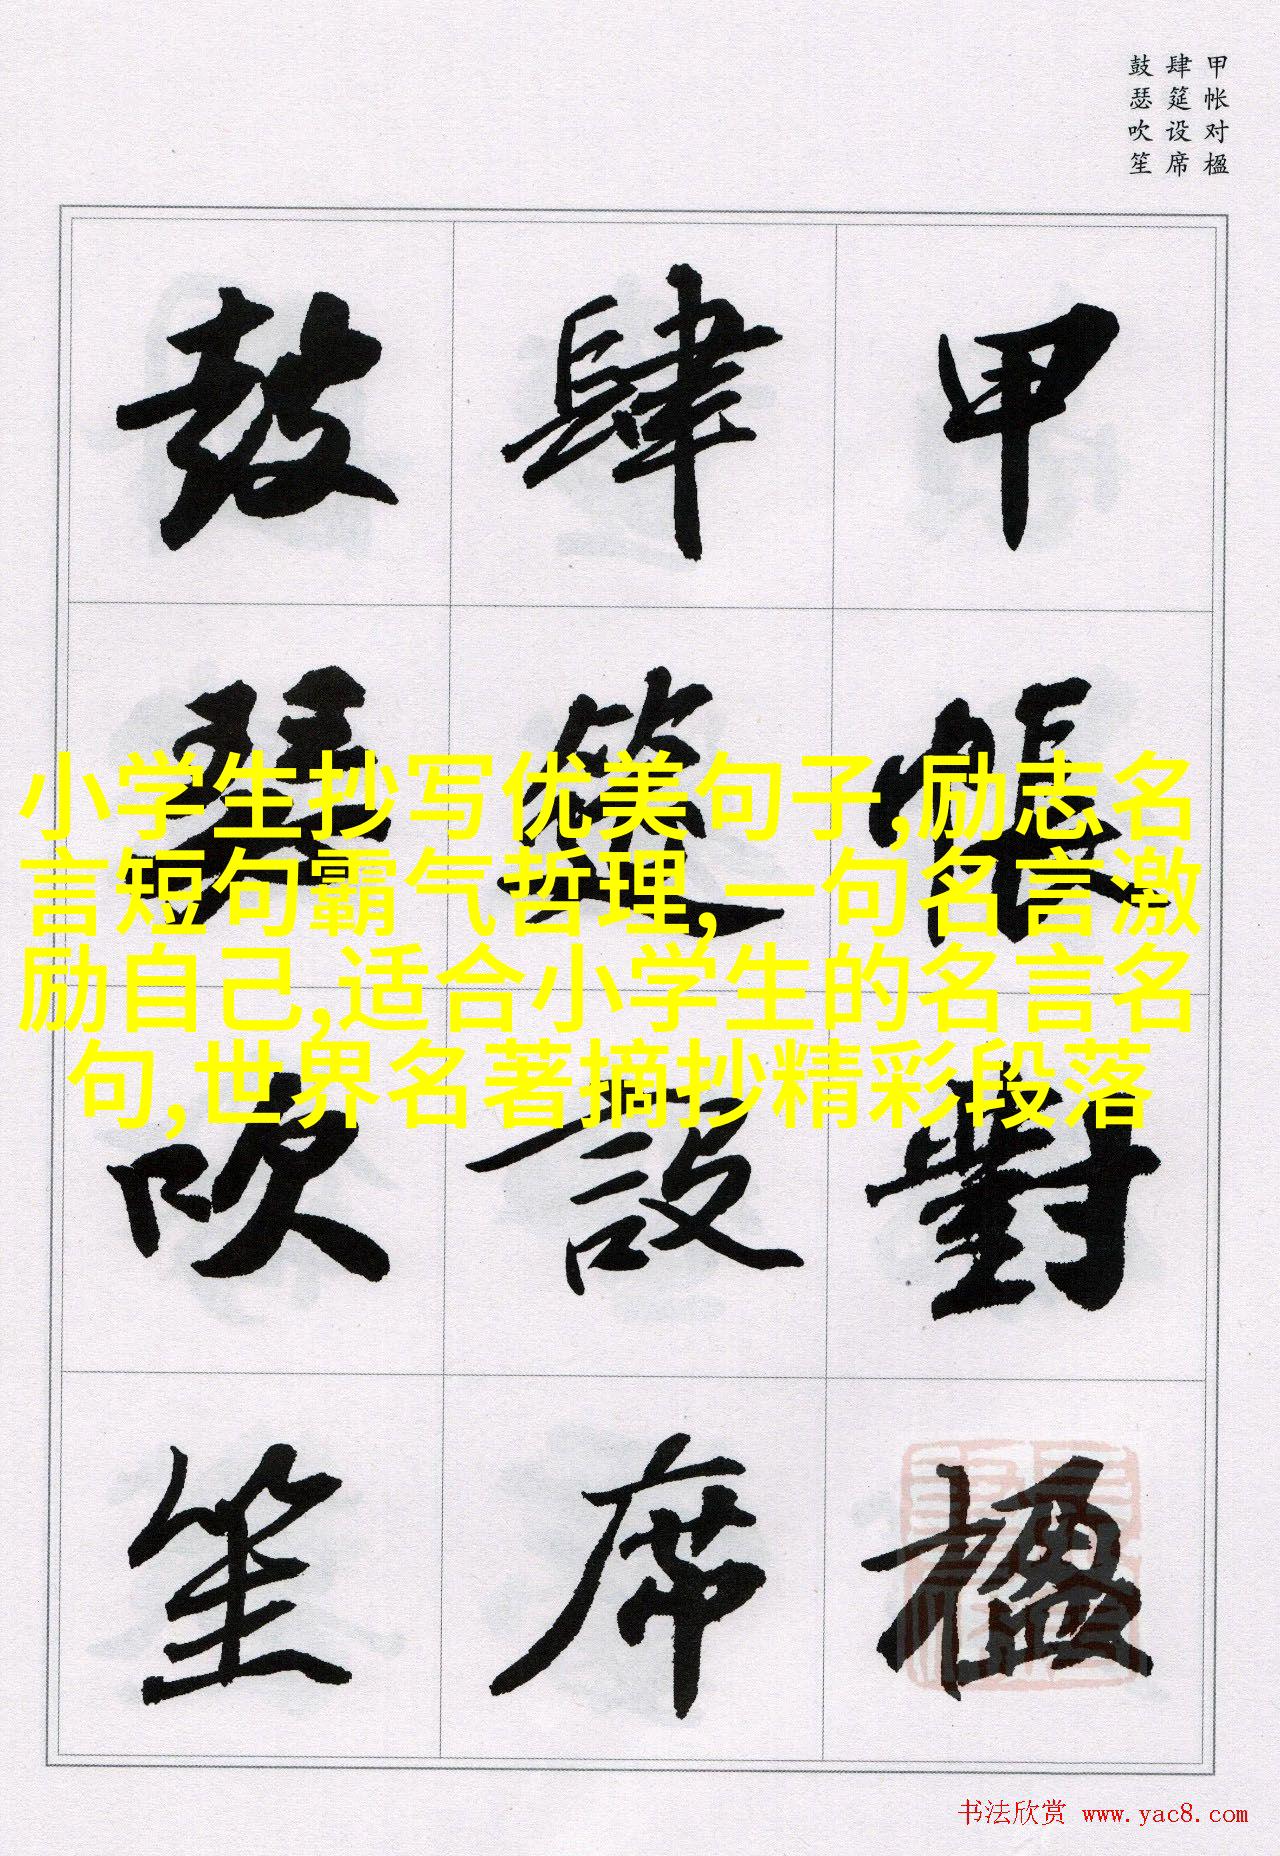 甲帐对楹
肆筵设席
鼓瑟吹笙
甲帳對楹
肆筵設席
鼓瑟吹笙
小学生抄写优美句子,励志名
言短句霸气哲理,一句名言激
励自己,适合小学生的名言名
句,世界名著摘抄精彩段落
书法欣赏 www.yac8.com